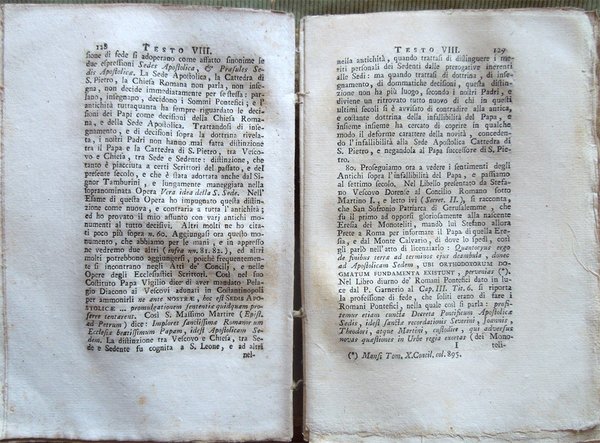 128 TESTO VIII.
sione di fede si adoperano come affatto sinonime le
due espressioni Sedes Apostolica, & Præsules Se-
dis Apostolicæ. La Sede Apostolica, la Cattedra di
S. Pietro, la Chiesa Romana non parla, non inse-
gna, non decide immediatamente per se stessa: par-
lano, insegnano, decidono i Sommi Pontefici; e l'
antichità tuttaquanta ha sempre riguardato le deci-
sioni dei Papi come decisioni della Chiesa Roma-
na, e della Sede Apostolica. Trattandosi di inse-
gnamenti, e di decisioni sopra la dottrina rivela-
ta, i nostri Padri non hanno mai fatta distinzione
tra il Papa e la Cattedra di S. Pietro, tra Vesco-
vo e Chiesa, tra Sede e Sedente: distinzione, che
tanto è piacciuta a certi Scrittori del passato, e del
presente secolo, e che è stata adottata anche dal Si-
gnor Tamburini, e lungamente maneggiata nella
sopranominata Opera Vera idea della S. Sede. Nell'
Esame di questa Opera ho impugnato questa distin-
zione come nuova, e contraria a tutta l'antichità;
ed ho provato il mio assunto con varj antichi monu-
menti al tutto decisivi. Altri molti ne ho cita-
ti poco più sopra n.60. Aggiungasi ora quello mo-
numento, che abbiamo per le mani, e in appresso
ne vedremo altri due (infra nn.81.82.), ed altri
molti potrebbono aggiungersi, poichè frequentemen-
te si incontrano negli Atti de' Concilj, e nelle
Opere degli Ecclesiastici Scrittori. Così nel suo
Costituto Papa Vigilio dice di aver mandato Pela-
gio Diacono ai Vescovi adunati in Costantinopoli
per ammonirli ne ante NOSTRÆ, hoc est SEDIS APO-
STOLICÆ ... promulgationem sententiæ quidquam pro-
ferre tentarent. Così S. Massimo Martire (Epist.
ad Petrum) dice: Implore sanctissimæ Romanorum
Ecclesiæ beatissimum Papam, idest Apostolicam Se-
dem. La distinzione tra Vescovo e Chiesa, tra Se-
de e Sedente fu cognita a S. Leone, e ad altri
nel-
TESTO VIII. 129
nella antichità, quando trattasi di distinguere i me-
riti personali dei Sedenti dalle prerogative inerenti
alle Sedi: ma quando trattasi di dottrina, di inse-
gnamento, di dommatiche decisioni, questa distin-
zione non ha più luogo, secondo i nostri Padri, e
diviene un ritrovato tutto nuovo di chi in questi
ultimi secoli si è avvisato di contradire alla antica,
e costante dottrina della infallibilità del Papa, e
insieme insieme ha cercato di coprire in qualche
modo il deforme carattere della novità, conceden-
do l'infallibilità alla Sede Apostolica Cattedra di
S. Pietro, e negandola al Papa successore di S. Pie-
tro.
80. Proseguiamo ora a vedere i sentimenti degli
Antichi sopra l'infallibilità del Papa, e passiamo
al settimo secolo. Nel Libello presentato da Stefa-
no Vescovo Dorense al Concilio Romano sotto
Martino I., e letto ivi (Secret. II.), si racconta,
che San Sofronio Patriarca di Gerusalemme, che
fu il primo ad opporsi gloriosamente alla nascente
Eresia dei Monoteliti, mandò lui Stefano allora
Prete a Roma per informare il Papa di quella Ere-
sia, e dal Monte Calvario, di dove lo spedì, così
gli parlò nell'atto di licenziarlo: Quantocyus ergo
de finibus terræ ad terminos ejus deambula, donec
ad Apostolicam Sedem, UBI ORTHODOXORUM DO-
GMATUM FUNDAMENTA EXISTUNT, pervenias (*).
Nel Libro diurno de' Romani Pontefici dato in lu-
ce dal P. Garnerio al Cap. III. Tit. 6. si riporta
la professione di fede, che soliti erano di fare i
Romani Pontefici, nella quale così si parla: profi-
temur etiam cuncta Decreta Pontificum Apostolicæ
Sedis, idest sanctæ recordationis Severini, Joannis,
Theodori, atque Martini, custodire, qui adversus
novas quæstiones in Urbe regia exortas (dei Mono-
I teli-
(*) Mansi Tom. X. Concil. col. 895.